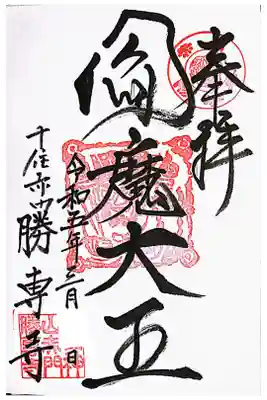 奉拝
閻魔大王
令和五年 月 日
千住赤門 勝専寺